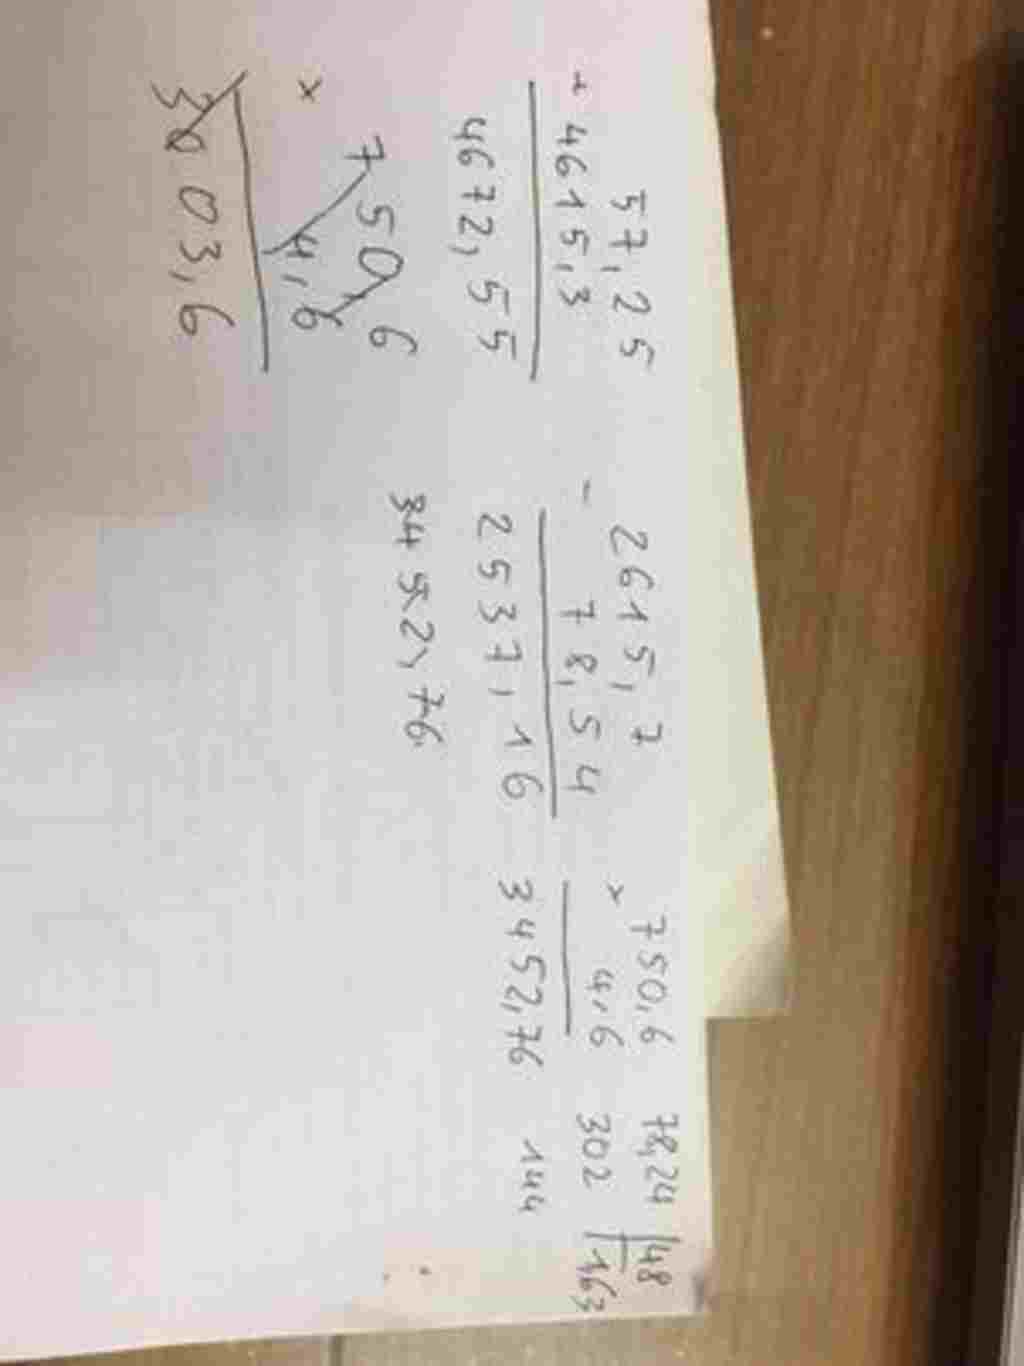 57,25
+ 4615,3
4672,55
2615,7
- 78,54
2537,16
3452,76
750,6
× 4,6
3452,76
78,24 | 48
302 | 1,63
144
7506
× 4,6
3003,6